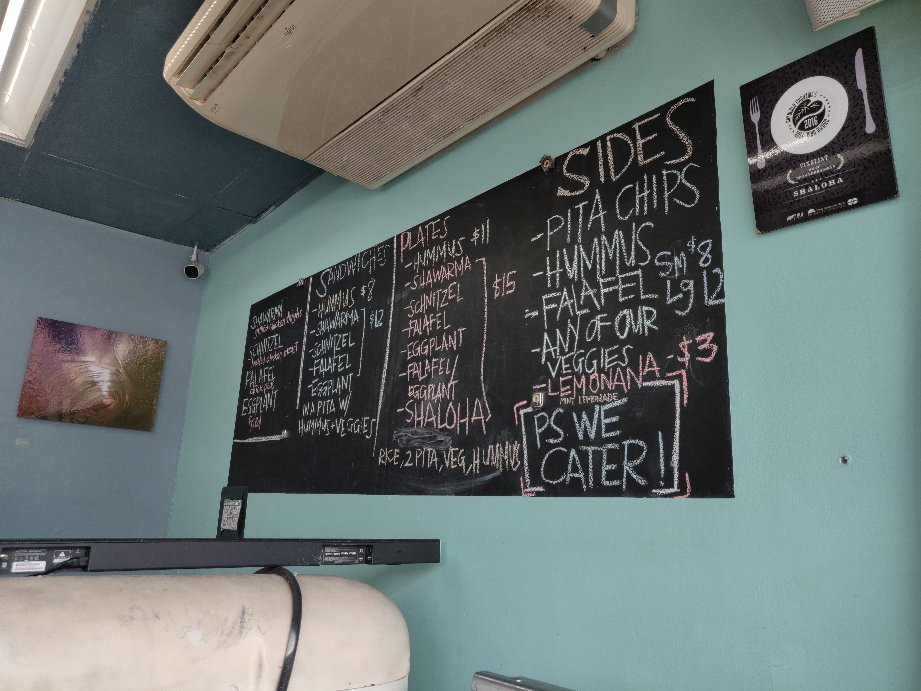 SHAWARMA
SCHNITZEL
FALAFEL
EGGPLANT
SANDWICHES
-HUMMUS $8
-SHAWARMA
-SCHNITZEL
-FALAFEL
-EGGPLANT
$12
IN A PITA W/
HUMMUS+VEGGIES
PLATES
-HUMMUS $11
-SHAWARMA
-SCHNITZEL
-FALAFEL
-EGGPLANT
-FALAFEL/
EGGPLANT
-SHALOHA
$15
RICE, 2 PITA, VEG, HUMMUS
SIDES
-PITA CHIPS
-HUMMUS
-FALAFEL
SM $8
LG 12
-ANY OF OUR
VEGGIES
-LEMONANA -$3
MINT LEMONADE
PS WE
CATER!
2016
FINALIST
SHALOHA